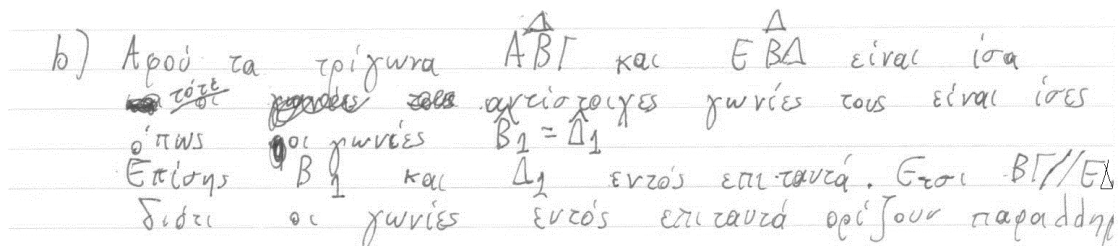 b) Αφού τα τρίγωνα ΑΒΓ και ΕΒΔ είναι ίσα
τότε οι αντίστοιχες γωνίες τους είναι ίσες
όπως οι γωνίες Β̂1 = Δ̂1
Επίσης Β1 και Δ1 εντός επι ταυτά. Ετσι ΒΓ//ΕΔ
διότι οι γωνίες εντός επι ταυτά ορίζουν παραλληρ